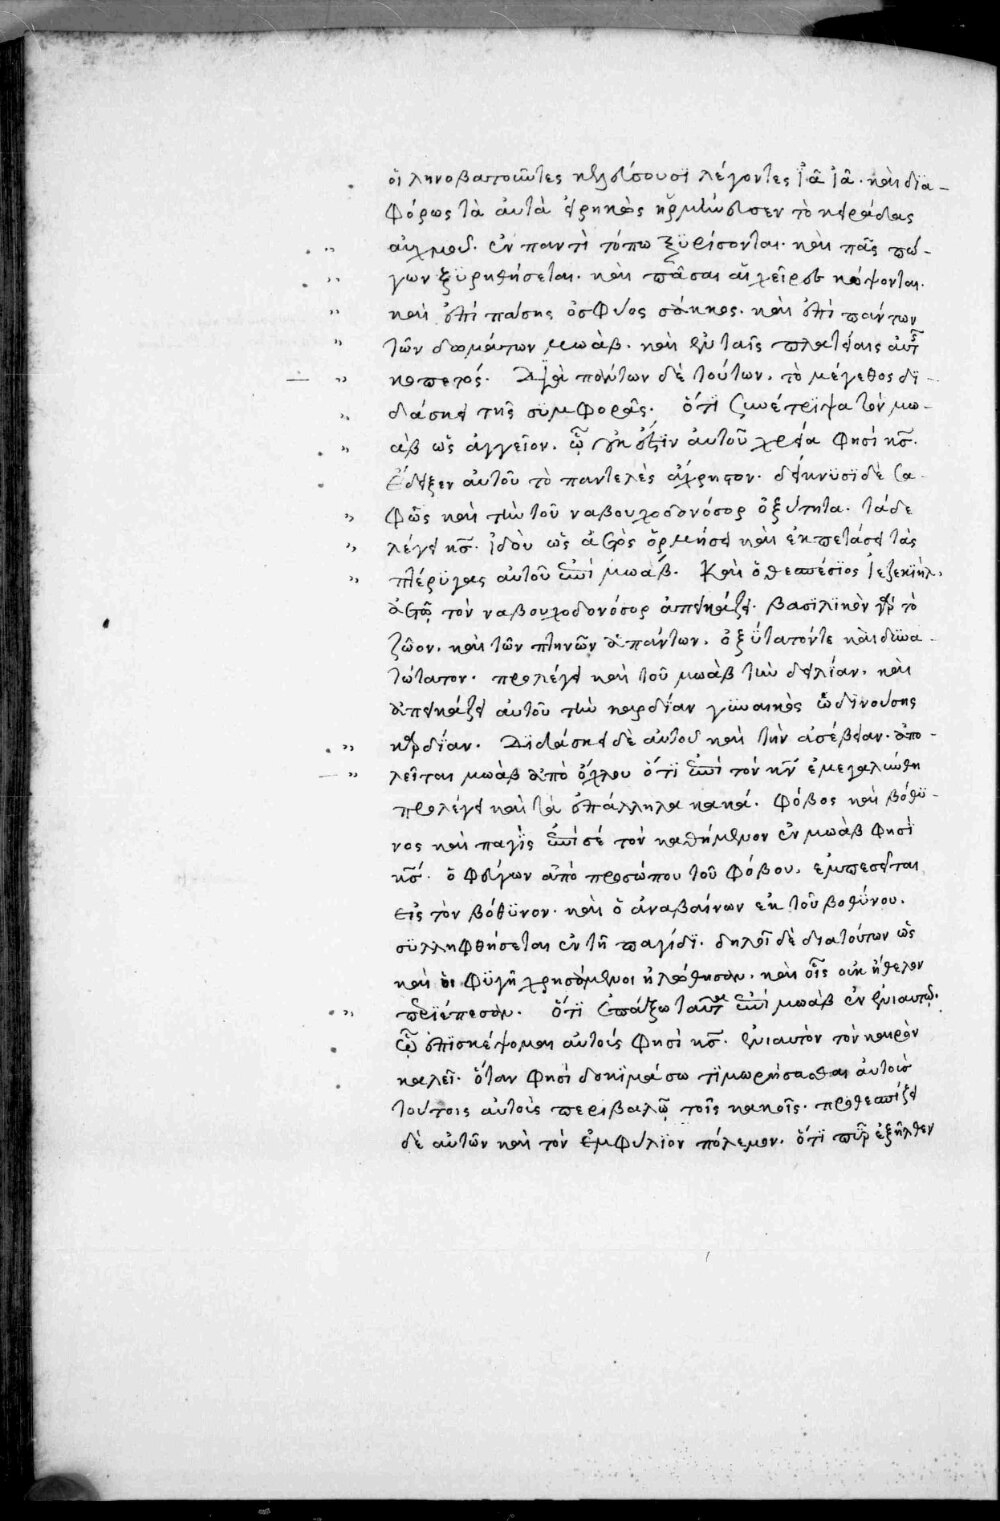 οἱ ληνοβατοῦντες κελεύσουσι λέγοντες ἰᾶ ἰᾶ. καὶ δια-
φόρως τὰ αὐτὰ εἰρηκὼς ἡρμήνευσεν τὸ κειράδας
αὐχμοῦ. ἐν παντὶ τόπω ξυρίσονται. καὶ πᾶς πώ-
γων ξυρηθήσεται. καὶ πᾶσαι αἱ χεῖρες κόψονται.
καὶ ἐπὶ πάσης ὀσφύος σάκκος. καὶ ἐπὶ πάντων
τῶν δωμάτων μωὰβ. καὶ ἐν ταῖς πλατείαις αὐτ
κοπετός. Διὰ πάντων δὲ τούτων, τὸ μέγεθος δι-
δάσκει τῆς συμφορᾶς. ὅτι συνέτριψα τὸν μω-
ὰβ ὡς ἀγγεῖον, ᾧ οὐκ ἔστιν αὐτοῦ χρεία φησὶ κς.
ἔδειξεν αὐτοῦ τὸ παντελὲς ἄχρηστον. δείκνυσι δὲ σα-
φῶς καὶ τὴν τοῦ ναβουχοδονόσορ ὀξύτητα. τάδε
λέγει κς. ἰδοὺ ὡς ἀετὸς ὁρμήσει καὶ ἐκπετάσει τὰς
πτέρυγας αὐτοῦ ἐπὶ μωάβ. Καὶ ὁ θεσπέσιος ἰεζεκιὴλ,
ἀετῷ τὸν ναβουχοδονόσορ ἀπεικάζει. βασιλικὸν γὰρ τὸ
ζῶον, καὶ τῶν πτηνῶν ἁπάντων, ὀξύτατόν τε καὶ δυνα-
τώτατον. προλέγει καὶ τοῦ μωὰβ τὴν δειλίαν. καὶ
ἀπεικάζει αὐτοῦ τὴν καρδίαν γυναικὸς ὠδινούσης
καρδίαν. Διδάσκει δὲ αὐτοῦ καὶ τὴν ἀσέβειαν. ἀπο-
λεῖται μωὰβ ἀπὸ ὄχλου ὅτι ἐπὶ τὸν κν ἐμεγαλύνθη
προλέγει καὶ τὰ ἐπάλληλα κακά. φόβος καὶ βόθυ-
νος καὶ παγὶς ἐπὶ σέ τὸν καθήμενον ἐν μωὰβ φησὶ
κς. ὁ φεύγων ἀπὸ προσώπου τοῦ φόβου, ἐμπεσεῖται
εἰς τὸν βόθυνον. καὶ ὁ ἀναβαίνων ἐκ τοῦ βοθύνου,
συλληφθήσεται ἐν τῆ παγίδι. δηλοῖ δὲ διὰ τούτων ὡς
καὶ οἱ φυγῆ χρησόμενοι ἡλώθησαν, καὶ οἷς οὐκ ἤθελον
περιέπεσον. ὅτι ἐπάξω ταῦτα ἐπὶ μωὰβ ἐν ἐνιαυτῷ.
ᾧ ἐπισκέψομαι αὐτούς φησὶ κς. ἐνιαυτὸν τὸν καιρὸν
καλεῖ. ὅταν φησὶ δοκιμάσω τιμωρήσασθαι αὐτοὺς
τούτοις αὐτοὺς περιβαλῶ τοῖς κακοῖς. προθεσπίζει
δὲ αὐτῶν καὶ τὸν ἐμφύλιον πόλεμον. ὅτι πῦρ ἐξῆλθεν